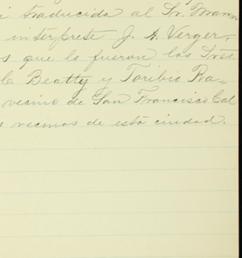 traducida al Sr.
interprete J. A. Verger
que lo fueron los Sres
la Beatty y Toribio Ra-
vecino de San Francisco Cal
vecinos de esta ciudad.